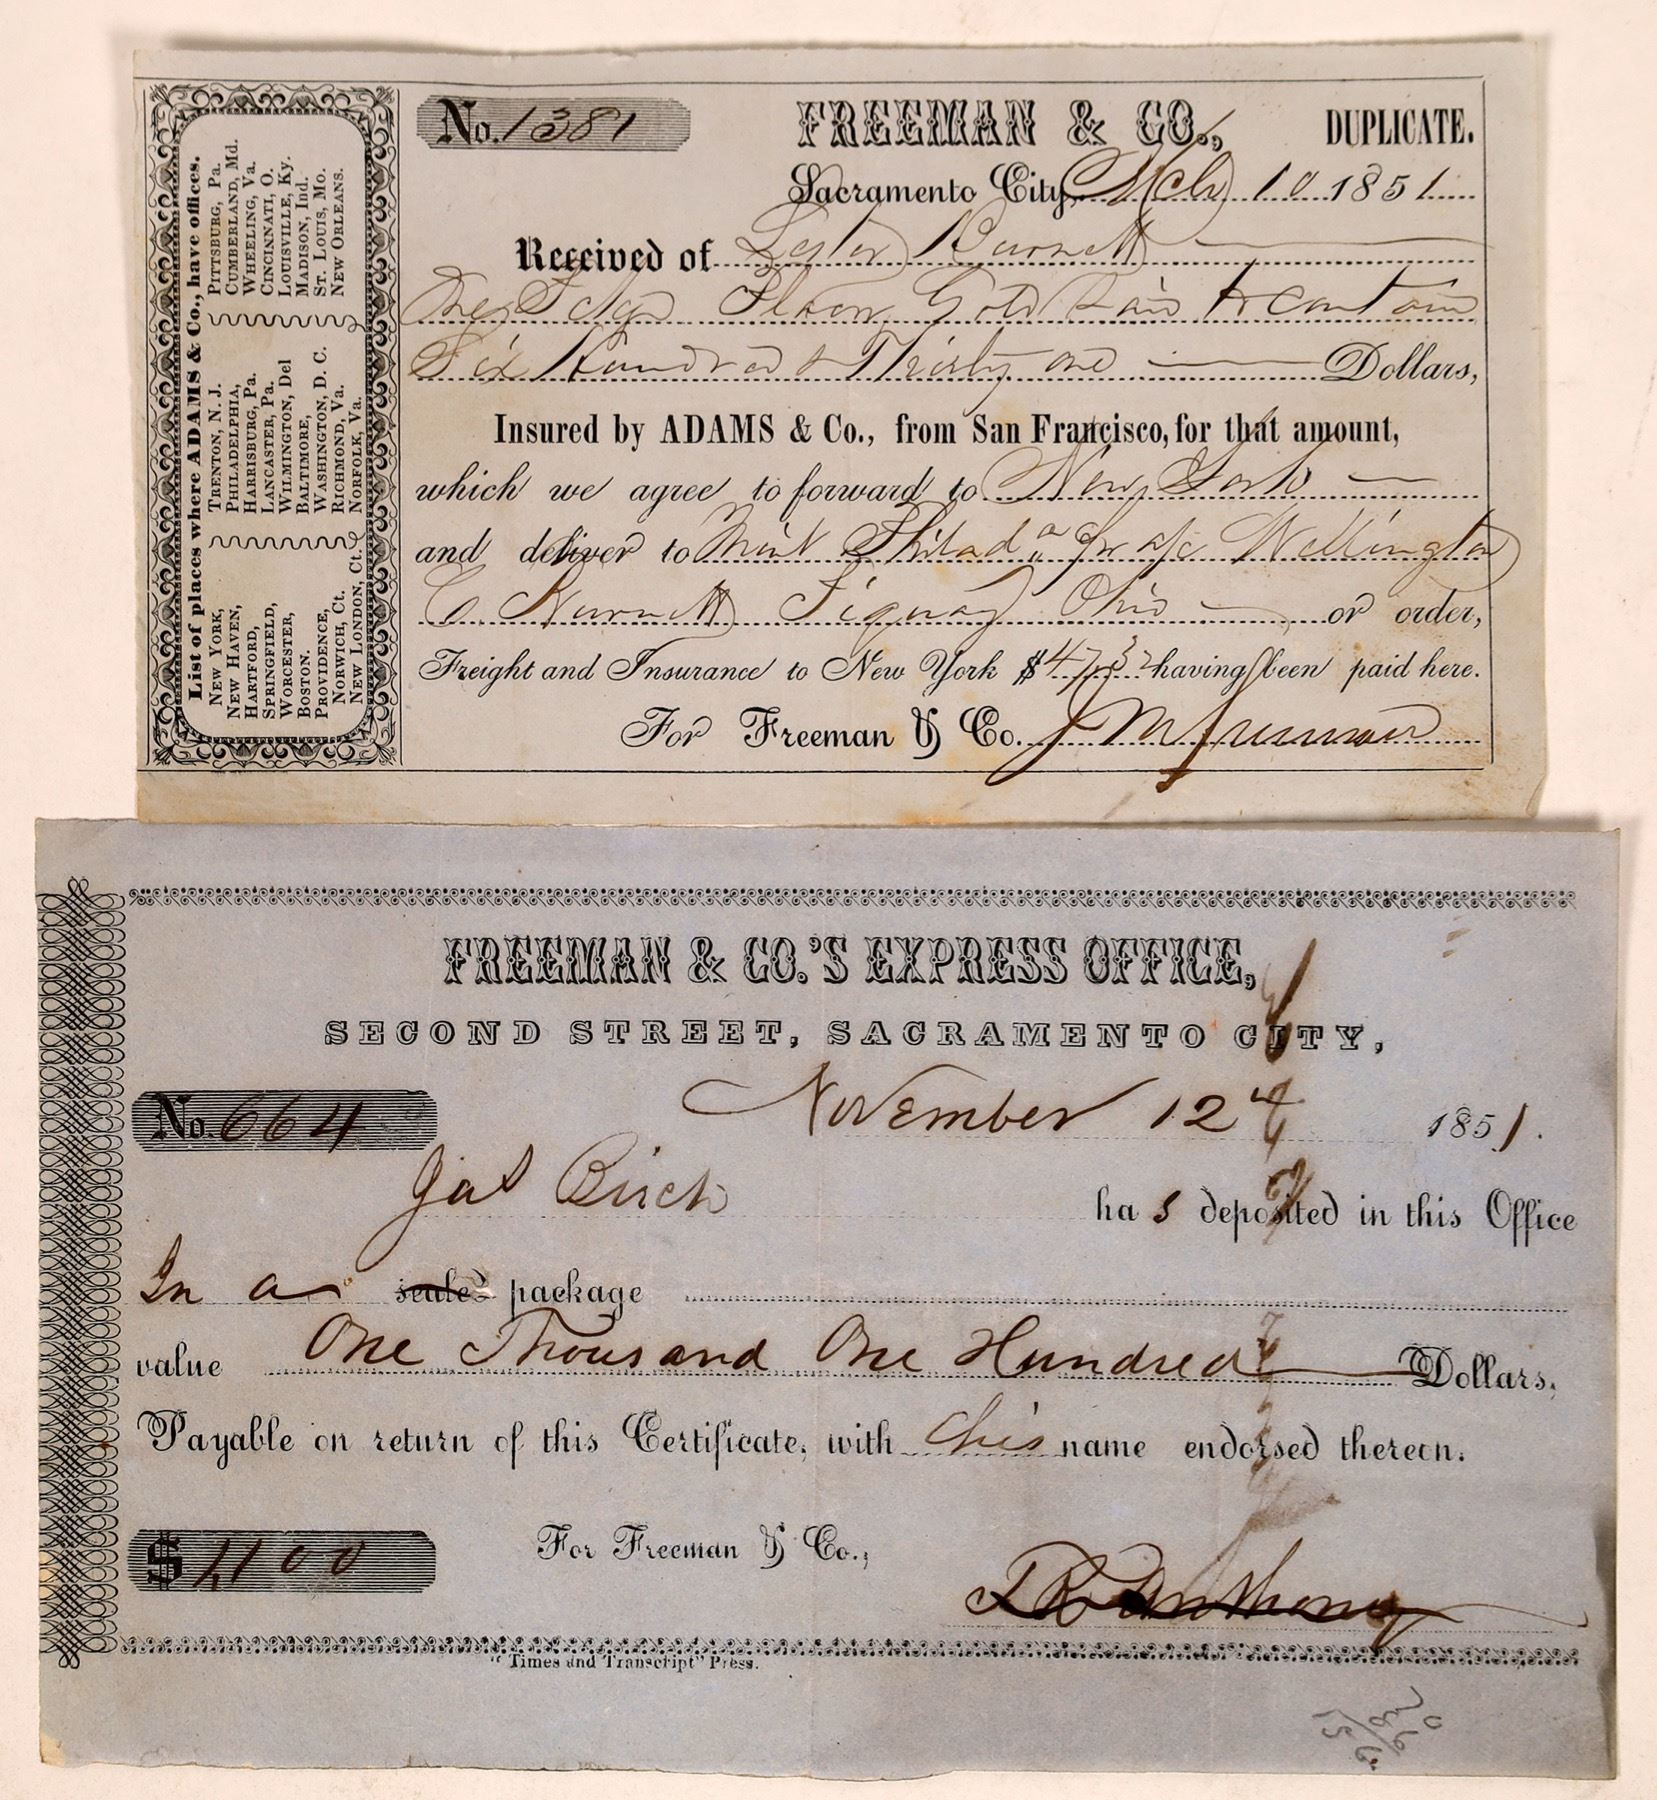 List of places where ADAMS & Co., have offices.
NEW YORK,
NEW HAVEN,
HARTFORD,
SPRINGFIELD,
WORCESTER,
BOSTON.
PROVIDENCE,
NORWICH, Ct.
NEW LONDON, Ct.
TRENTON, N. J.
PHILADELPHIA,
HARRISBURG, Pa.
LANCASTER, Pa.
WILMINGTON, Del
BALTIMORE,
WASHINGTON, D. C.
RICHMOND, Va.
NORFOLK, Va.
PITTSBURG, Pa.
CUMBERLAND, Md.
WHEELING, Va.
CINCINNATI, O.
LOUISVILLE, Ky.
MADISON, Ind.
ST. LOUIS, Mo.
NEW ORLEANS.
No. 1381 FREEMAN & CO., DUPLICATE.
Sacramento City, Mch 10 1851
Received of Lester Burnett
One Gold Said to contain
Six Hundred & Thirty one Dollars,
Insured by ADAMS & Co., from San Francisco, for that amount,
which we agree to forward to New York
and deliver to Mint Philada for a/c Wellington
C. Burnett Piquay Ohio or order,
Freight and Insurance to New York $47.32 having been paid here.
For Freeman & Co. J M Freeman
FREEMAN & CO.'S EXPRESS OFFICE,
SECOND STREET, SACRAMENTO CITY,
No. 664 November 12 1851.
Jas Birch has deposited in this Office
In a sealed package
value One Thousand One Hundred Dollars,
Payable on return of this Certificate, with his name endorsed thereon.
$1100 For Freeman & Co.,
J R Anthony
"Times and Transcript" Press.